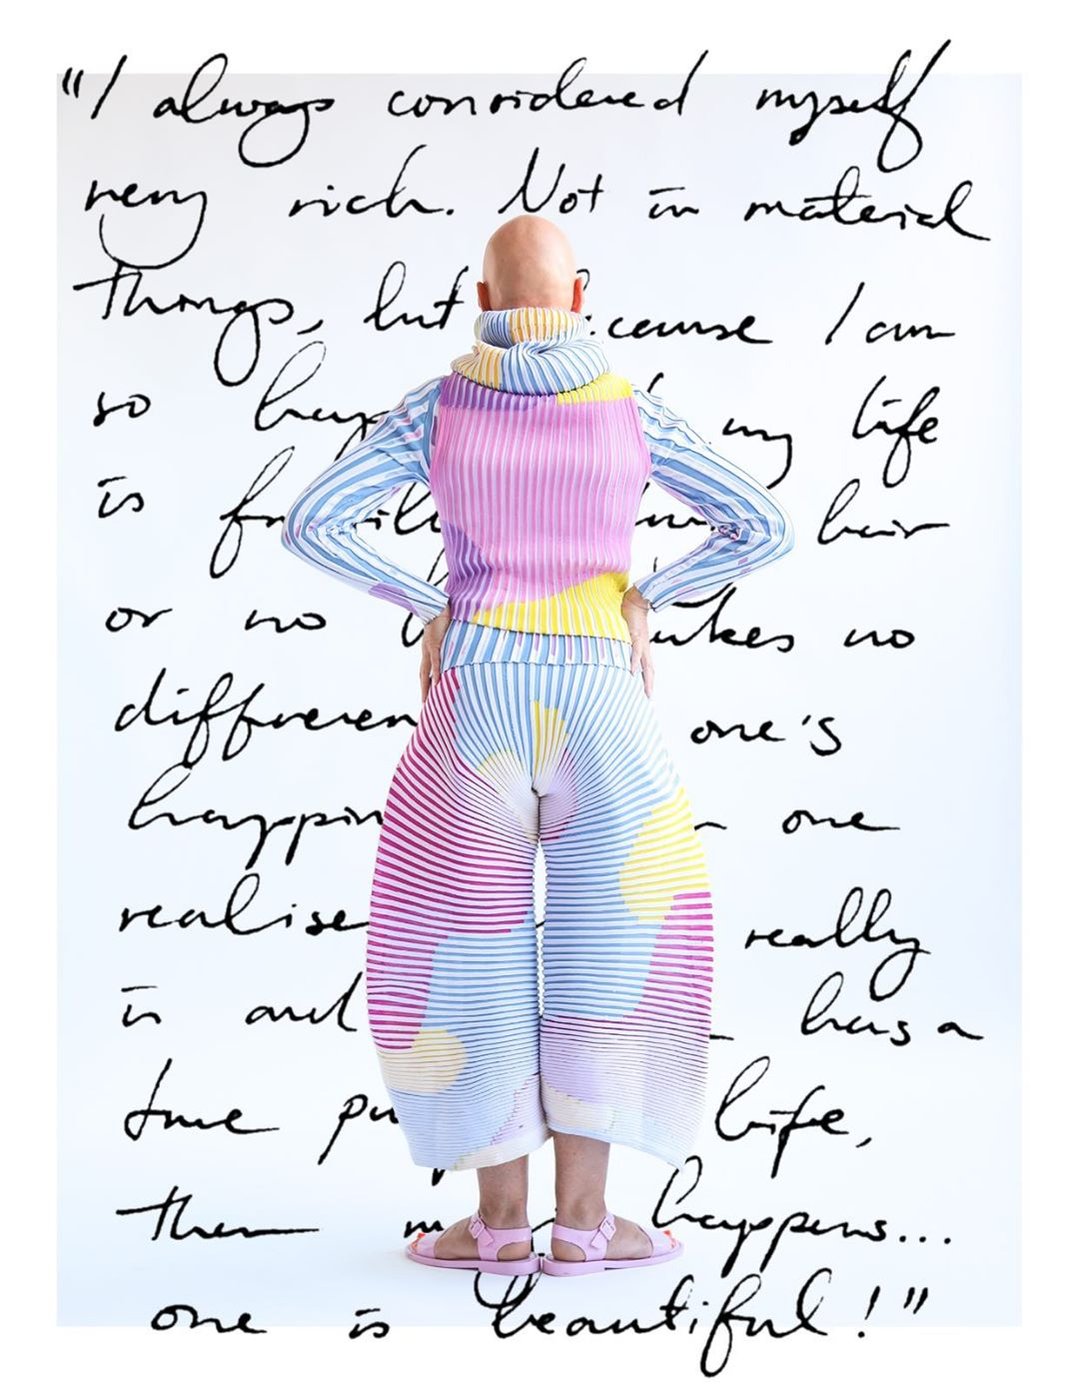 "I always considered myself
very rich. Not in material
things, but because I am
so happy my life
is hair
or no makes no
difference one's
happiness one
realise really
is and has a
true life,
then happens...
one is beautiful!"